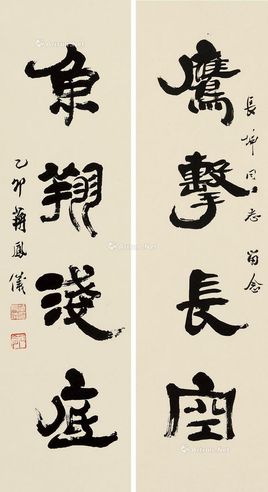 鷹擊長空
長坤同志留念
魚翔淺底
乙卯蔣鳳儀